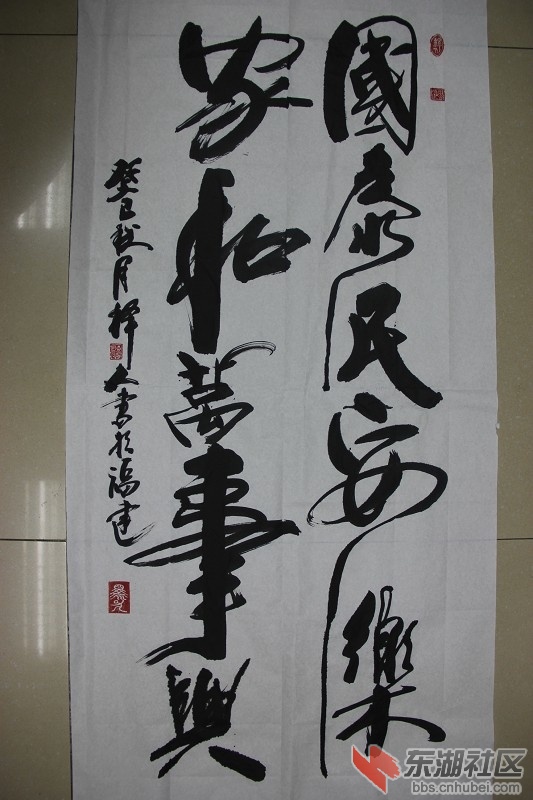 國泰民安樂
家和萬事興
癸巳秋月樺人書於福建
东湖社区
bbs.cnhubei.com